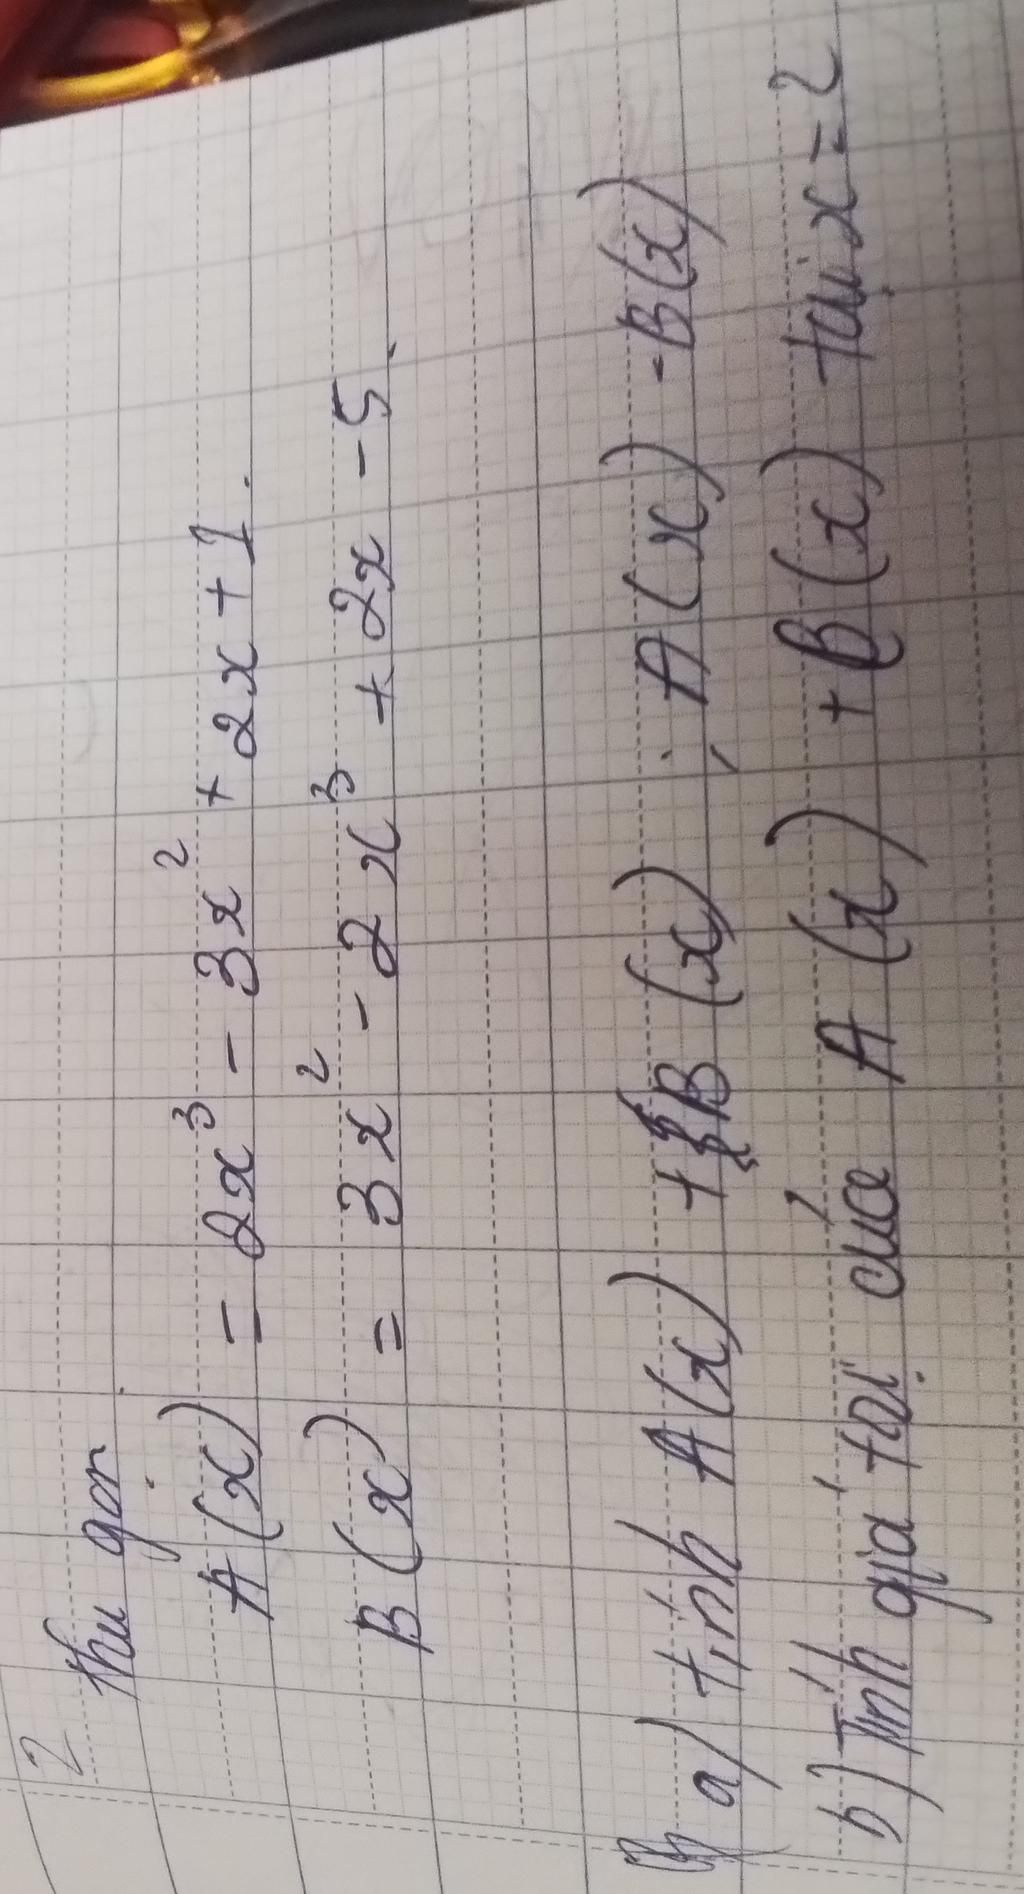 2
Thu gọn
A(x) = 2x³ - 3x² + 2x + 1.
B(x) = 3x² - 2x³ + 2x - 5.
a) tính A(x) + B(x); A(x) - B(x)
b) Tính giá trị của A(x) + B(x) tại x = 2